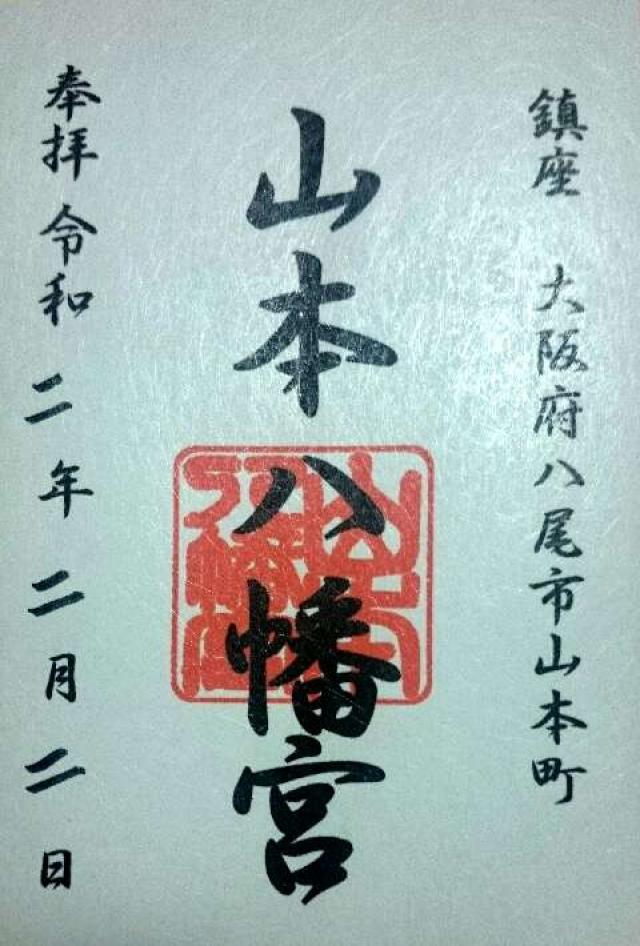 鎮座 大阪府八尾市山本町
山本八幡宮
奉拝 令和二年二月二日